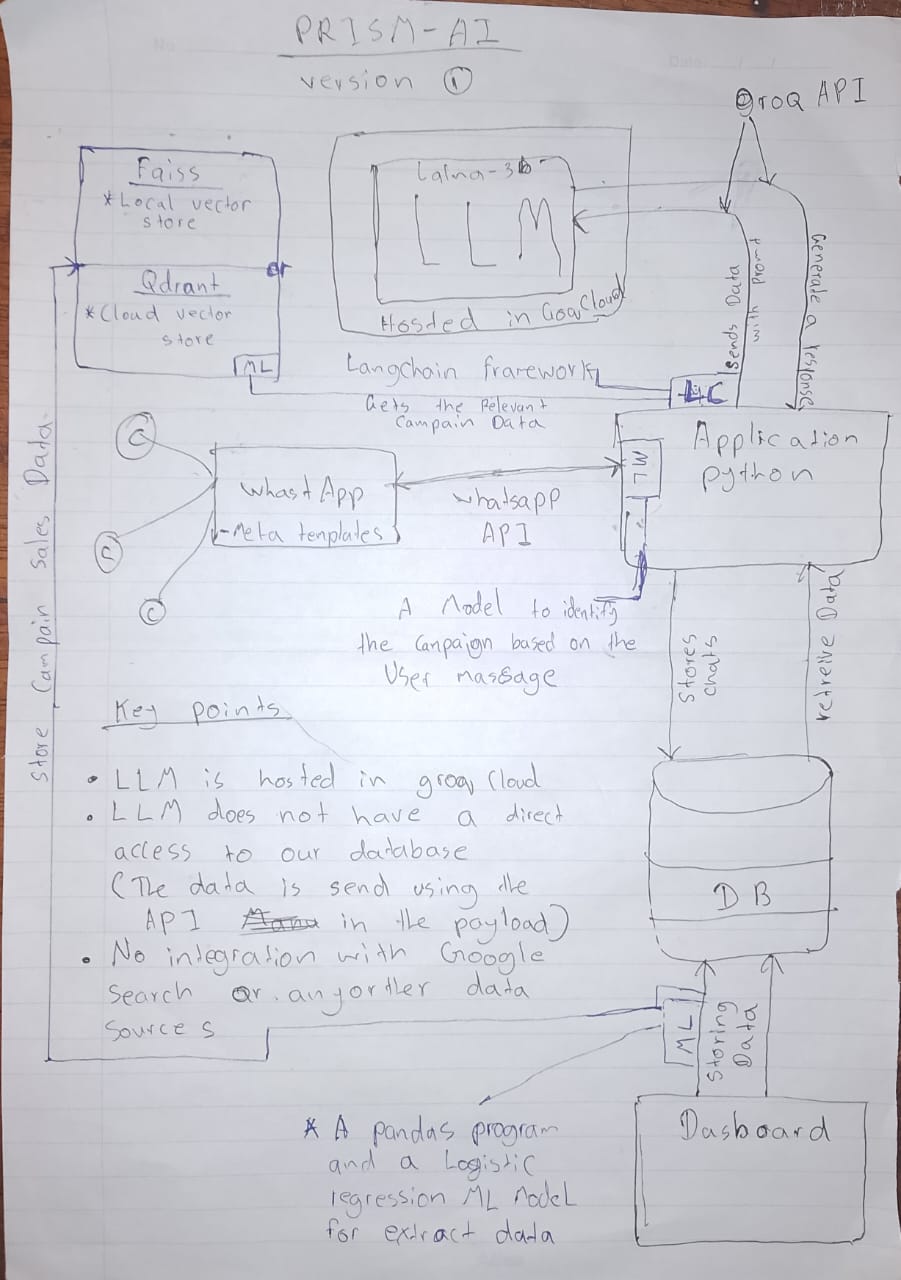 PRISM-AI
version ①
GroQ API
Faiss
* Local vector
store
or
Qdrant
* Cloud vector
store
ML
Lalma-3b
LLM
Hosted in Groq Cloud
Sends Data
with promt
Generate a response
Langchain framework
LC
Gets the Relevant
Campain Data
Application
python
ML
C
C
C
WhastApp
-Meta templates
whatsapp
API
A Model to identify
the Canpaign based on the
User massage
Stores
chats
retreive Data
Store Campain Sales Data
Key points
• LLM is hosted in groq Cloud
• LLM does not have a direct
access to our database
(The data is send using the
API in the payload)
• No integration with Google
Search or anyorther data
Sources
DB
ML
Storing
Data
Dasboard
* A pandas program
and a Logistic
regression ML Model
for extract data